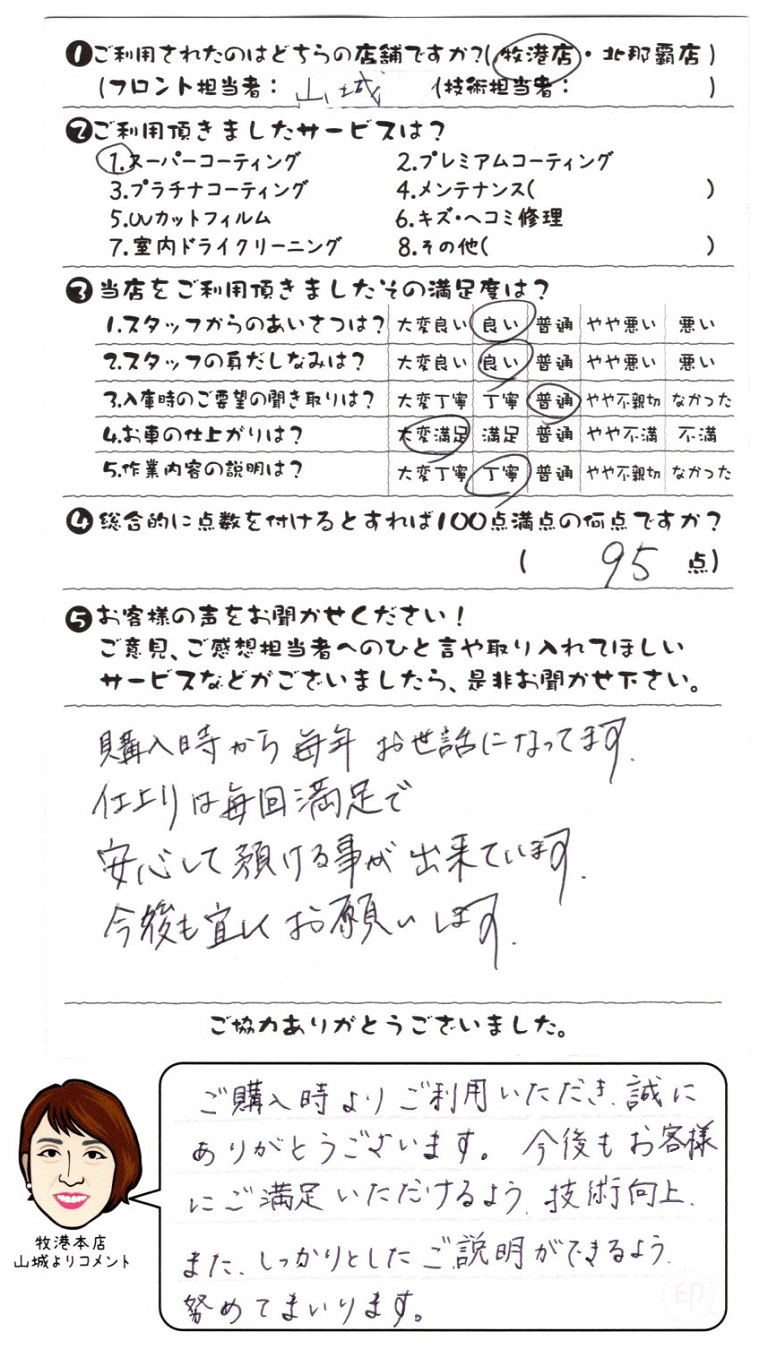 ❶ご利用されたのはどちらの店舗ですか?(牧港店・北那覇店)
(フロント担当者: 山城 (技術担当者: )
❷ご利用頂きましたサービスは?
1.スーパーコーティング 2.プレミアムコーティング
3.プラチナコーティング 4.メンテナンス( )
5.UVカットフィルム 6.キズ・ヘコミ修理
7.室内ドライクリーニング 8.その他( )
❸当店をご利用頂きましたその満足度は?
1.スタッフからのあいさつは? 大変良い 良い 普通 やや悪い 悪い
2.スタッフの身だしなみは? 大変良い 良い 普通 やや悪い 悪い
3.入庫時のご要望の聞き取りは? 大変丁寧 丁寧 普通 やや不親切 なかった
4.お車の仕上がりは? 大変満足 満足 普通 やや不満 不満
5.作業内容の説明は? 大変丁寧 丁寧 普通 やや不親切 なかった
❹総合的に点数を付けるとすれば100点満点の何点ですか?
( 95 点)
❺お客様の声をお聞かせください!
ご意見、ご感想担当者へのひと言や取り入れてほしい
サービスなどがございましたら、是非お聞かせ下さい。
購入時から毎年お世話になってます.
仕上りは毎回満足で
安心して預ける事が出来ています.
今後も宜しくお願いします.
ご協力ありがとうございました。
ご購入時よりご利用いただき、誠に
ありがとうございます。今後もお客様
にご満足いただけるよう、技術向上、
また、しっかりとしたご説明ができるよう、
努めてまいります。
牧港本店
山城よりコメント
印